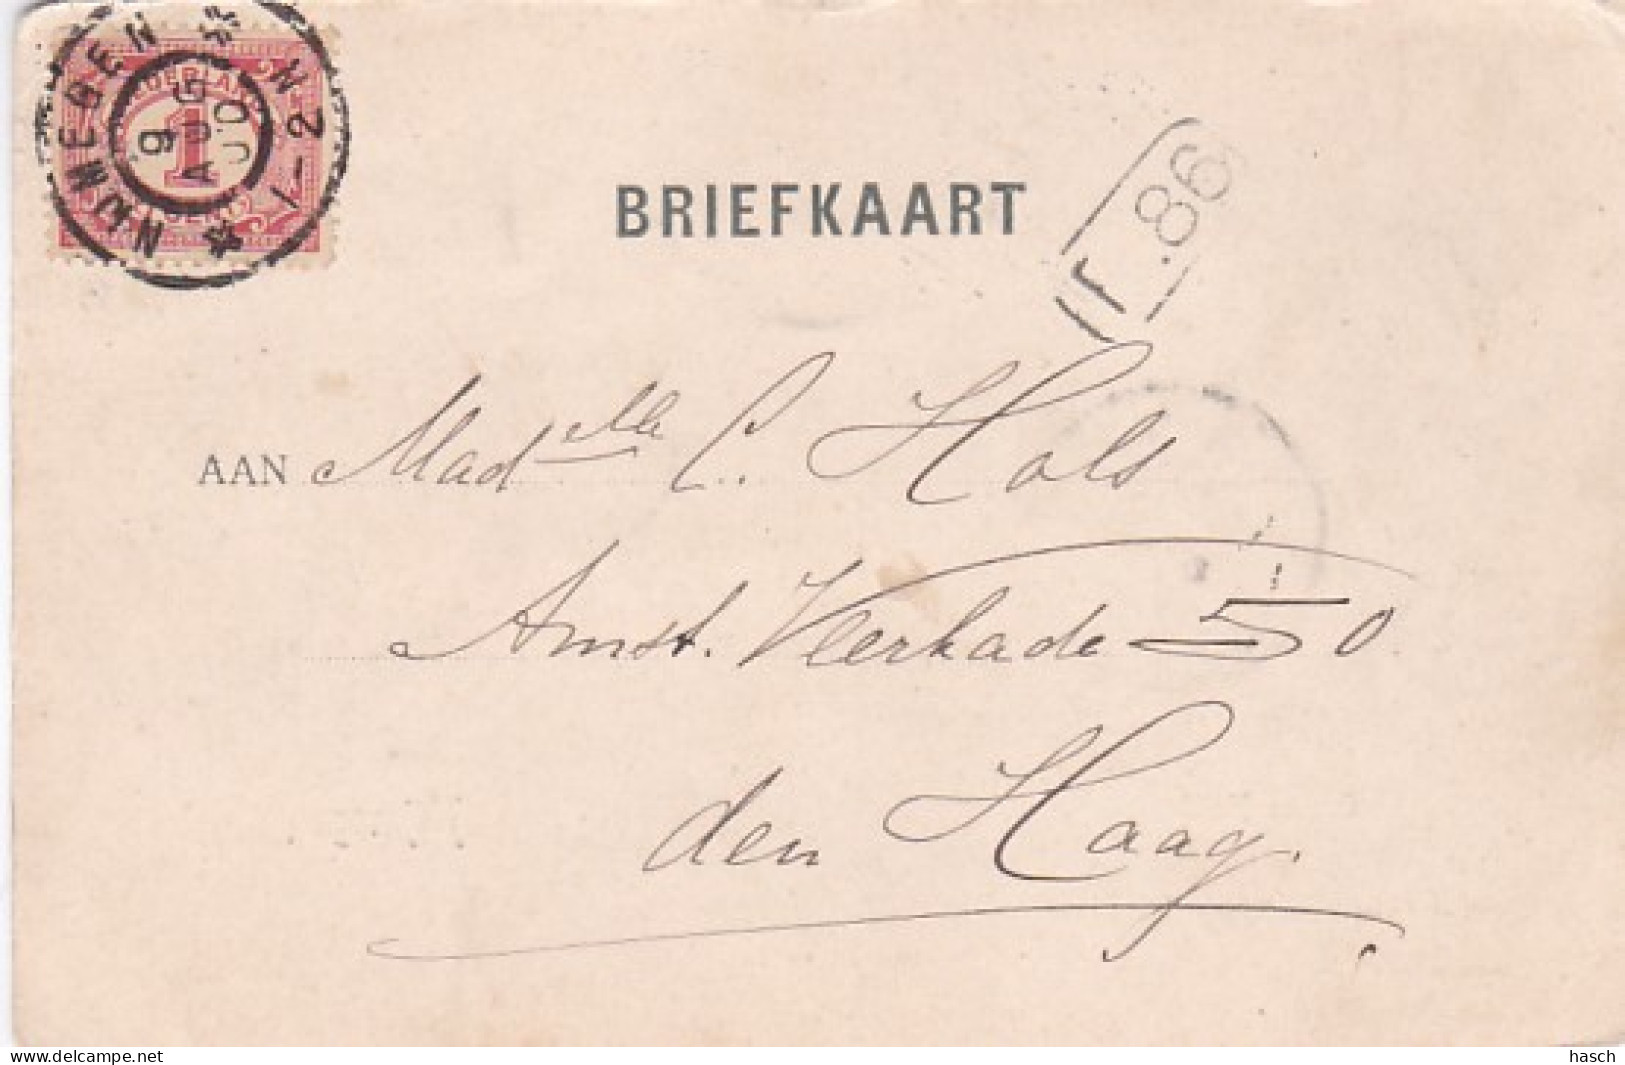 NIJMEGEN
9 AUG 00
1-2 N
NEDERLAND
1
BRIEFKAART
F.86
AAN Madelle C. Hols
Amst. Veerkade 50
den Haag.
www.delcampe.net
hasch